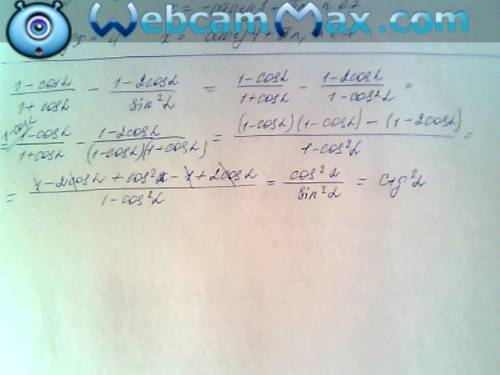 WebcamMax.com
(1-cosα)/(1+cosα) - (1-2cosα)/(sin²α) = (1-cosα)/(1+cosα) - (1-2cosα)/(1-cos²α) =
= (1-cosα)/(1+cosα) - (1-2cosα)/((1-cosα)(1+cosα)) = ((1-cosα)(1-cosα) - (1-2cosα))/(1-cos²α) =
= (1-2cosα + cos²α - 1 + 2cosα)/(1-cos²α) = cos²α/sin²α = ctg²α